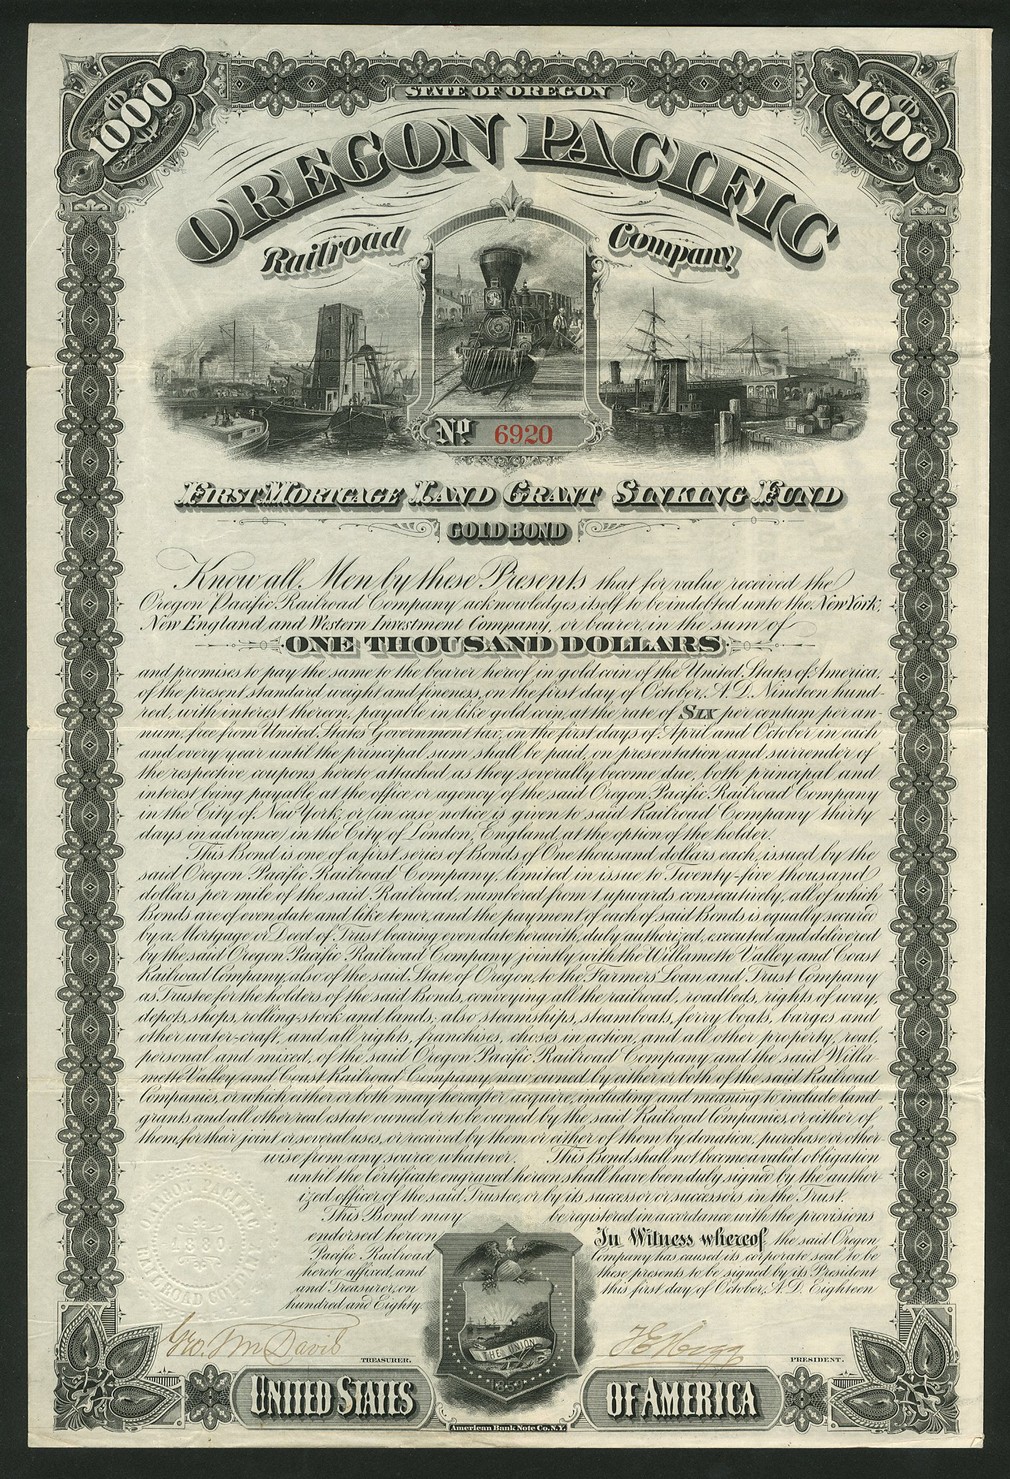 1000
1000
STATE OF OREGON
OREGON PACIFIC
Railroad Company
No 6920
FIRST MORTGAGE LAND GRANT SINKING FUND
GOLD BOND
Know all Men by these Presents that for value received the
Oregon Pacific Railroad Company acknowledges itself to be indebted unto the New York,
New England and Western Investment Company, or bearer, in the sum of
ONE THOUSAND DOLLARS
and promises to pay the same to the bearer hereof in gold coin of the United States of America,
of the present standard weight and fineness, on the first day of October, A.D. Nineteen hund-
red, with interest thereon, payable in like gold coin, at the rate of Six per centum per an-
num, free from United States Government tax, on the first days of April and October in each
and every year until the principal sum shall be paid, on presentation and surrender of
the respective coupons hereto attached, as they severally become due, both principal and
interest being payable at the office or agency of the said Oregon Pacific Railroad Company
in the City of New York; or (in case notice is given to said Railroad Company thirty
days in advance) in the City of London, England, at the option of the holder.
This Bond is one of a first series of Bonds of One thousand dollars each, issued by the
said Oregon Pacific Railroad Company, limited in issue to Twenty-five thousand
dollars per mile of the said Railroad, numbered from 1 upwards consecutively, all of which
Bonds are of even date and like tenor, and the payment of each of said Bonds is equally secured
by a Mortgage or Deed of Trust bearing even date herewith, duly authorized, executed and delivered
by the said Oregon Pacific Railroad Company jointly with the Willamette Valley and Coast
Railroad Company, also of the said State of Oregon, to the Farmers' Loan and Trust Company
as Trustee for the holders of the said Bonds, conveying all the railroad, roadbeds, rights of way,
depots, shops, rolling-stock and lands; also steamships, steamboats, ferry boats, barges and
other water-craft, and all rights, franchises, choses in action, and all other property, real,
personal and mixed, of the said Oregon Pacific Railroad Company and the said Willa-
mette Valley and Coast Railroad Company, now owned by either or both of the said Railroad
Companies, or which either or both may hereafter acquire, including and meaning to include land
grants and all other real estate owned or to be owned by the said Railroad Companies, or either of
them, for their joint or several uses, or received by them or either of them by donation, purchase or other-
wise from any source whatever. This Bond shall not become a valid obligation
until the Certificate engraved hereon shall have been duly signed by the author-
ized officer of the said Trustee, or by its successor or successors in the Trust.
This Bond may be registered in accordance with the provisions
endorsed hereon. In Witness whereof, the said Oregon
Pacific Railroad Company has caused its corporate seal to be
hereto affixed, and these presents to be signed by its President
and Treasurer, on this first day of October, A.D. Eighteen
hundred and Eighty.
OREGON PACIFIC
1880
RAILROAD CO.
Geo. S. McDavis
TREASURER.
T E Hogg
PRESIDENT.
THE UNION
1859
UNITED STATES OF AMERICA
American Bank Note Co. N.Y.